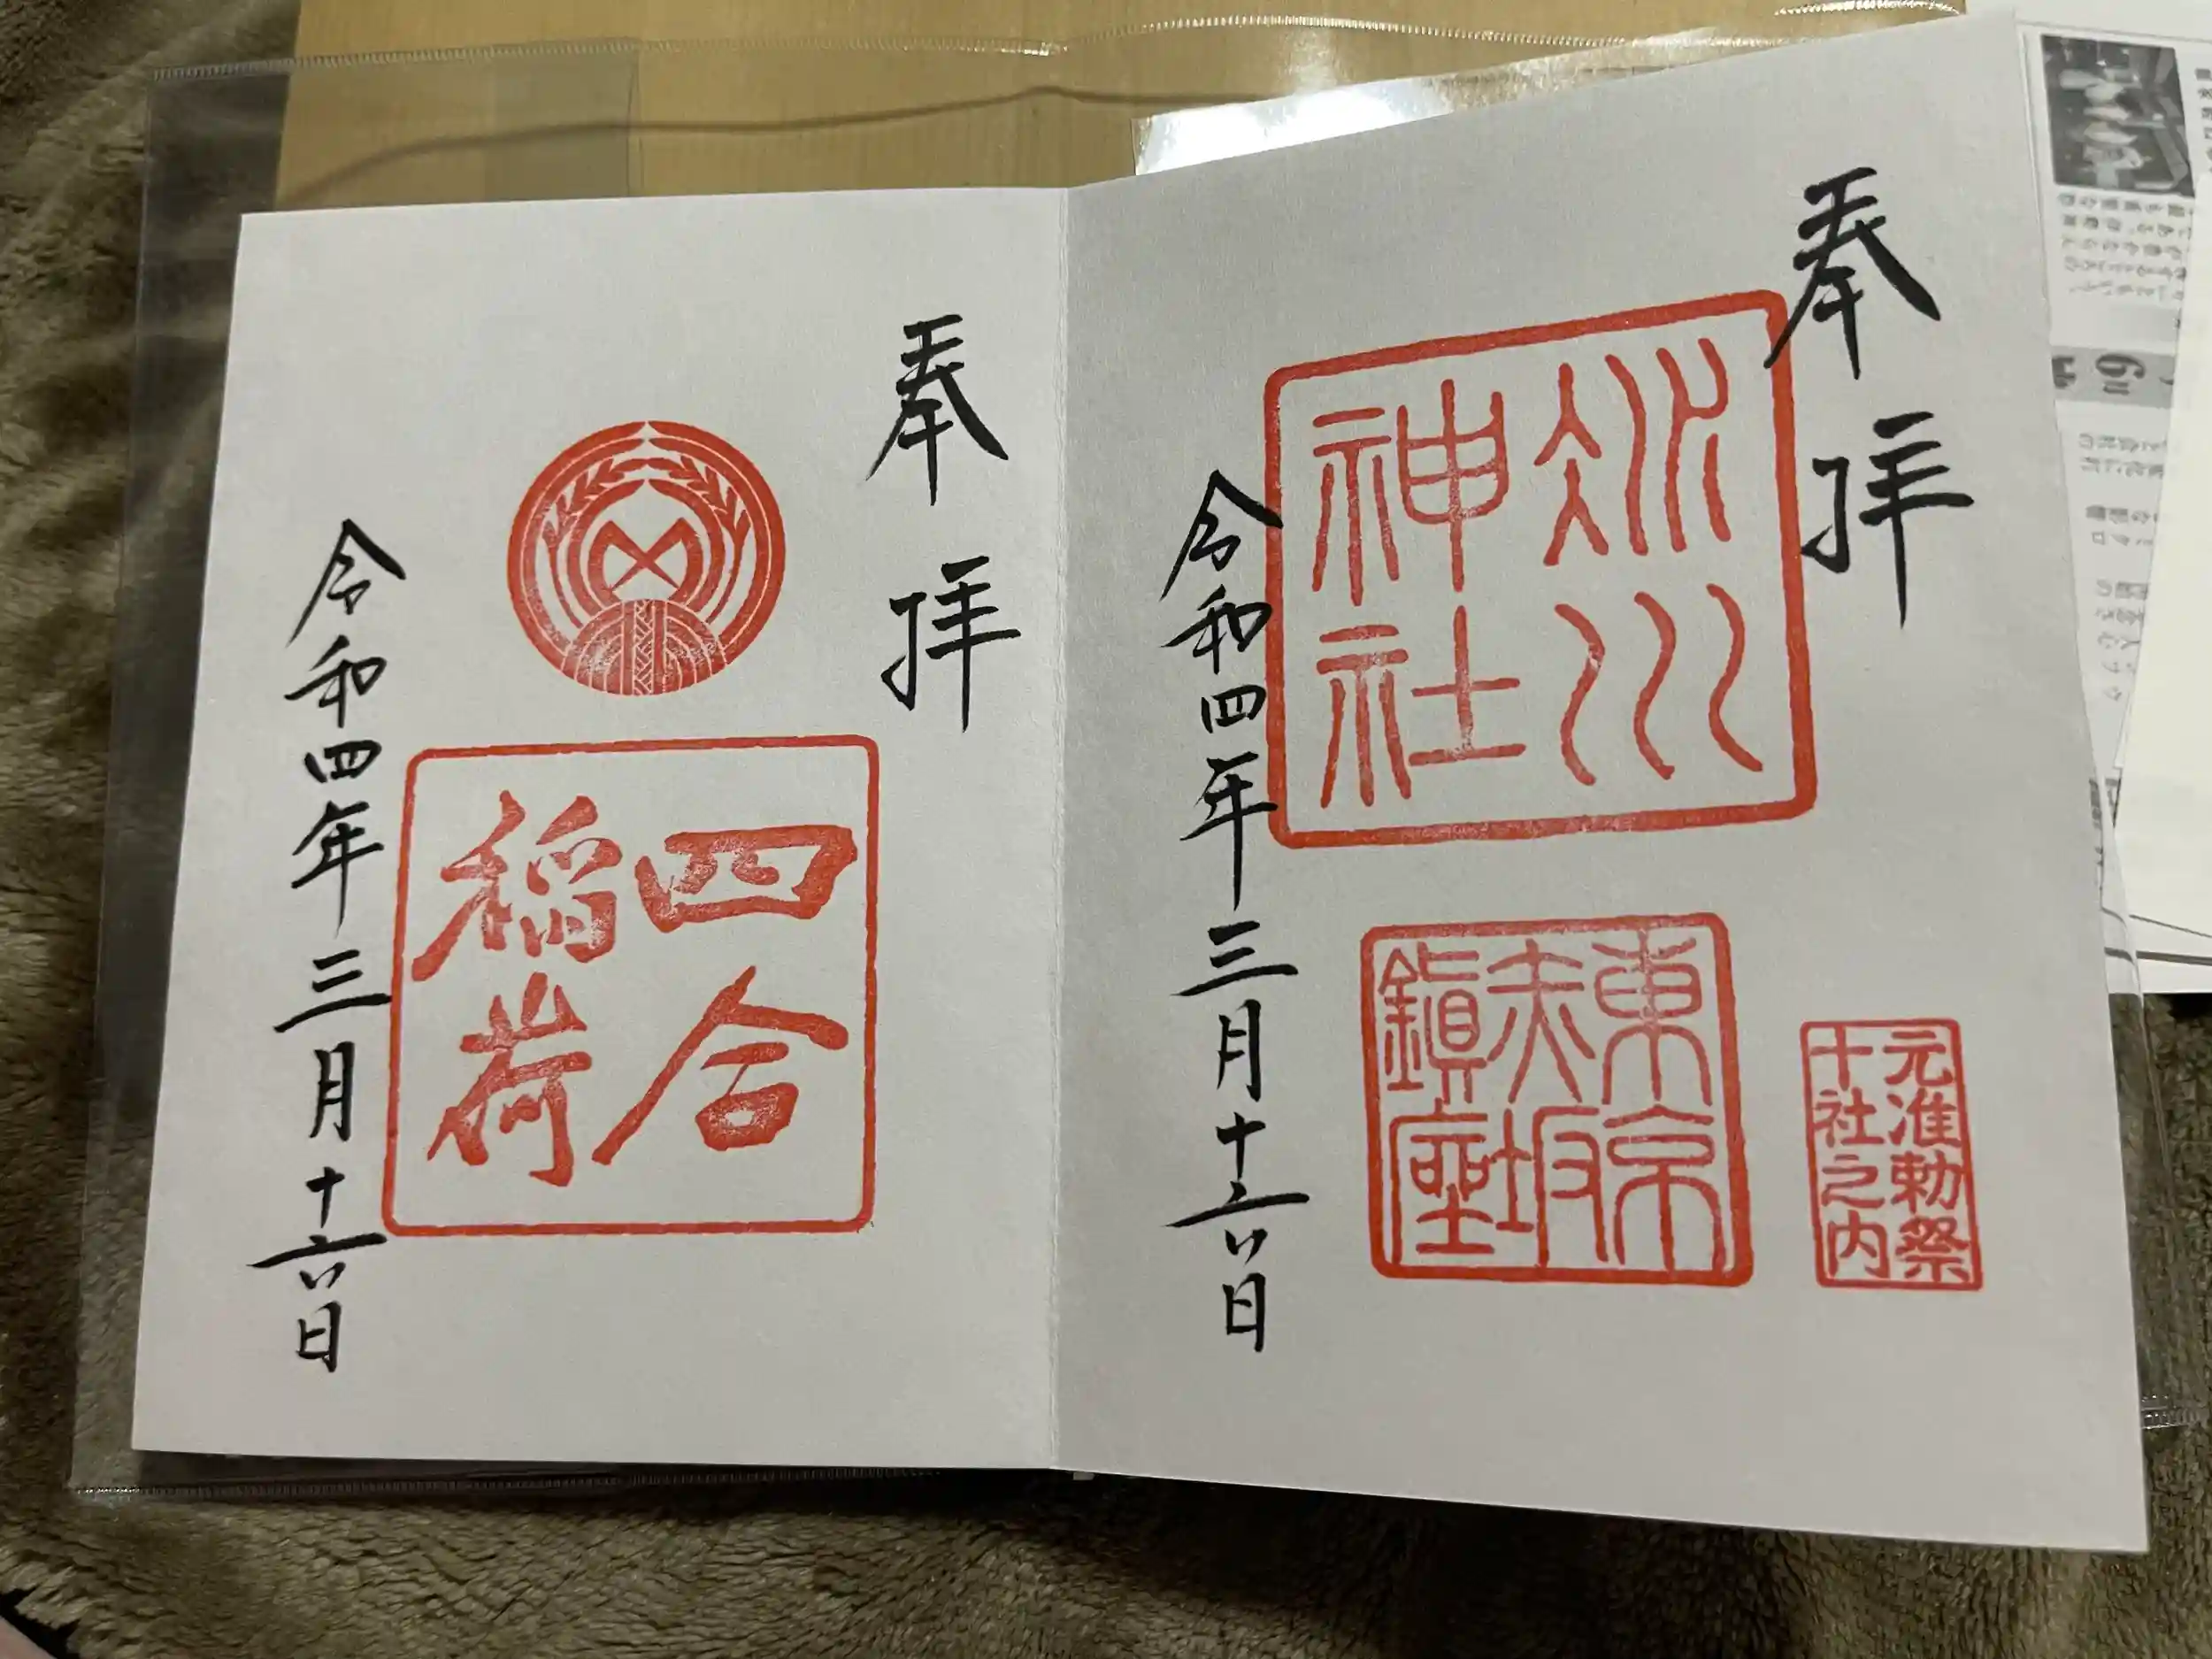 奉拝
氷川
神社
東京
赤坂
鎮座
元准勅祭
十社之内
令和四年三月十六日
奉拝
四合
稲荷
令和四年三月十六日